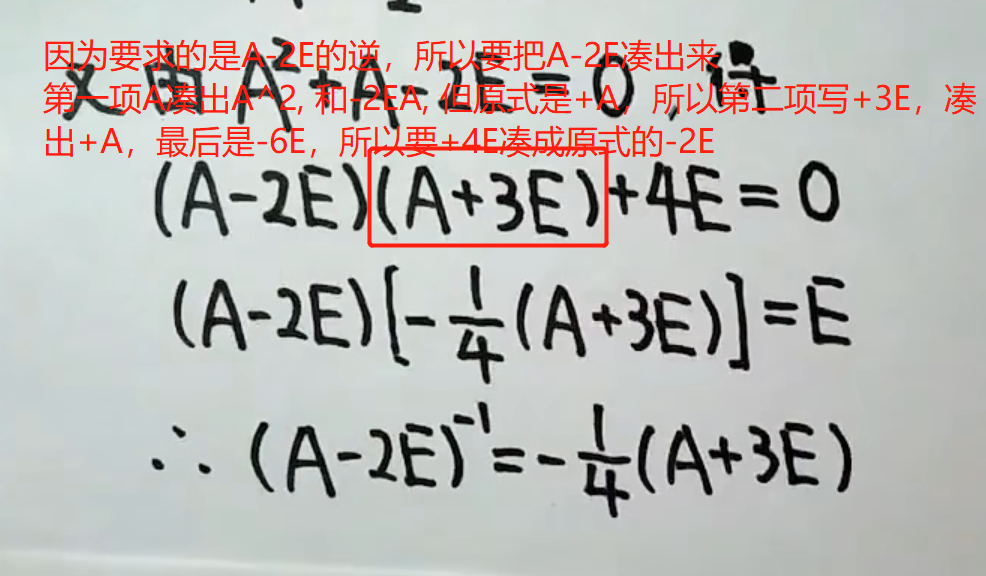 A 2
因为要求的是A-2E的逆，所以要把A-2E凑出来
又由A²+A-2E=0,得
第一项A凑出A^2, 和-2EA, 但原式是+A，所以第二项写+3E，凑
出+A，最后是-6E，所以要+4E凑成原式的-2E
(A-2E)(A+3E)+4E=0
(A-2E)[-1/4(A+3E)]=E
∴(A-2E)⁻¹=-1/4(A+3E)